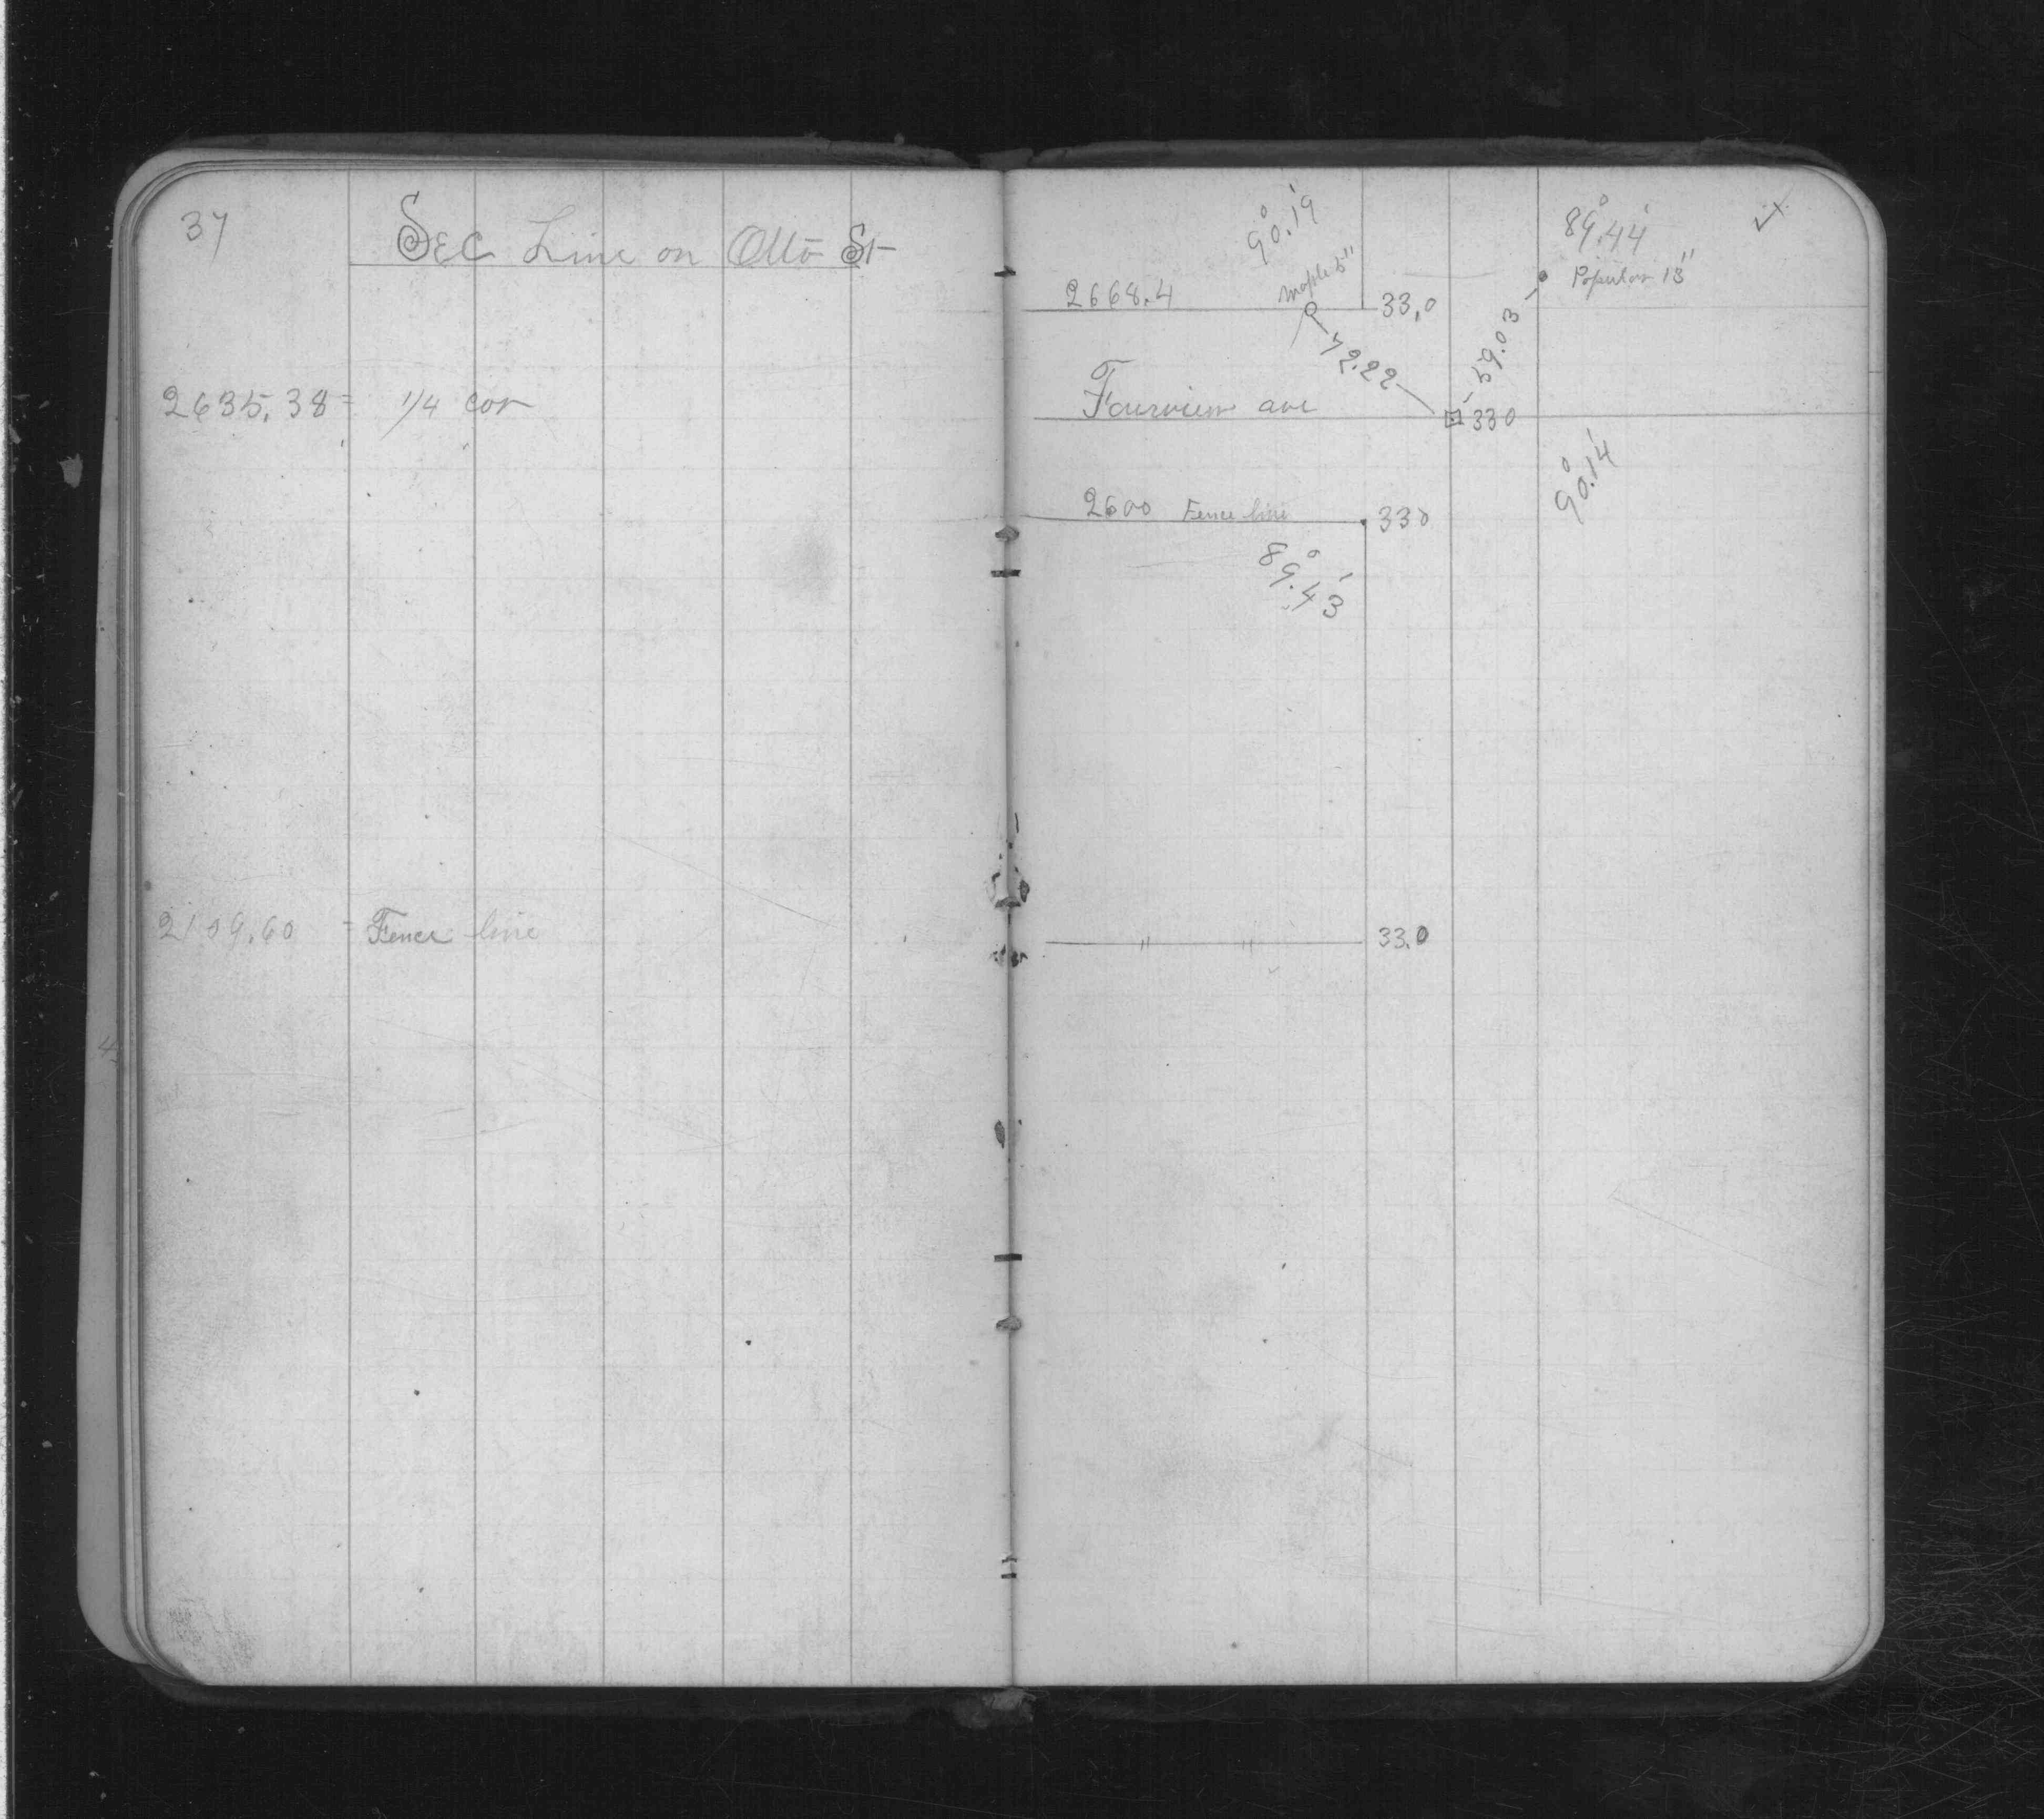 37
Sec Line on Otto St
2635.38 = 1/4 cor
2109.60 - Fence line
90°.19'
89°.44'
Maple 5"
Popular 13"
2668.4
33.0
72.22
59.03
Fairview ave
330
90°.14'
2600 Fence line
330
89°.43'
" "
33.0